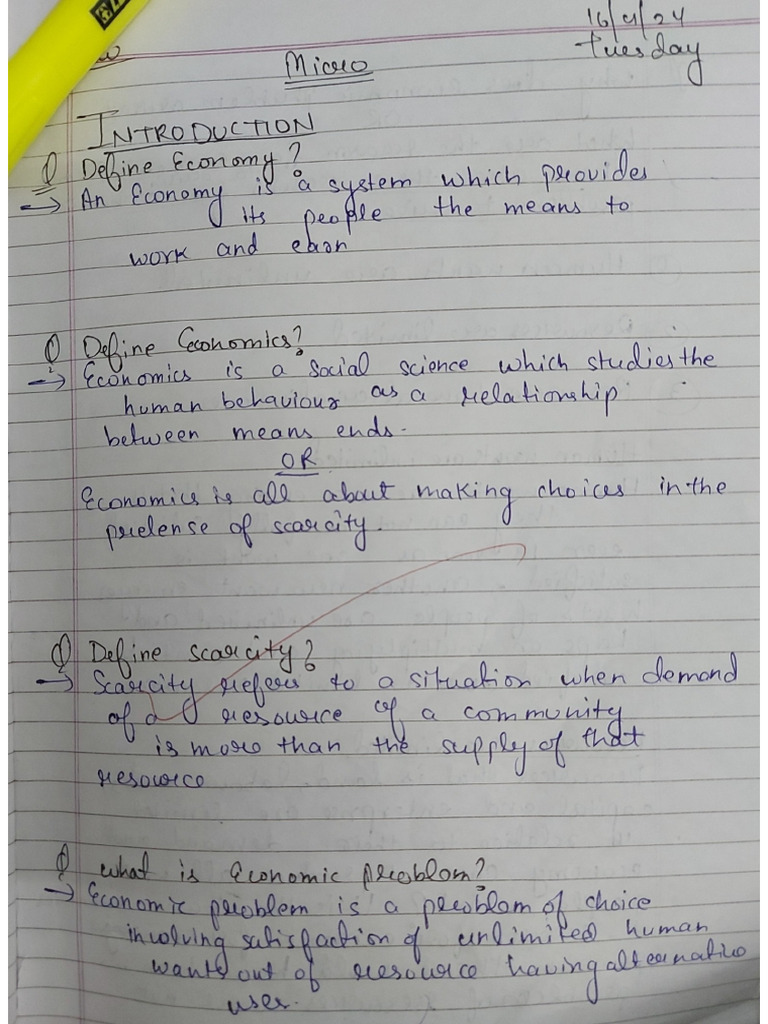 16/4/24
Tuesday
Micro
INTRODUCTION
Q Define Economy?
→ An Economy is a system which provides
its people the means to
work and earn
Q Define Economics?
→ Economics is a Social science which studies the
human behaviour as a relationship
between means ends.
OR
Economics is all about making choices in the
prelense of scarcity.
Q Define scarcity?
→ Scarcity refers to a situation when demand
of a resource of a community
is more than the supply of that
resource
Q what is Economic problem?
→ Economic problem is a problem of choice
involving satisfaction of unlimited human
wants out of resource having alternative
uses.